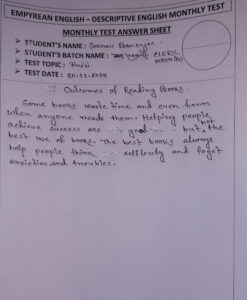 EMPYREAN ENGLISH – DESCRIPTIVE ENGLISH MONTHLY TEST
MONTHLY TEST ANSWER SHEET
➤ STUDENT'S NAME : Banerjee
➤ STUDENT'S BATCH NAME : CLERK
MAIN
➤ TEST TOPIC :
➤ TEST DATE : 20.11
Outcomes of Reading Books.
Some books waste time and even harm
when anyone reads them. Helping people
achieve success are good but not the
best use of books. The best books always
help people think selflessly and forget
anxieties and troubles.